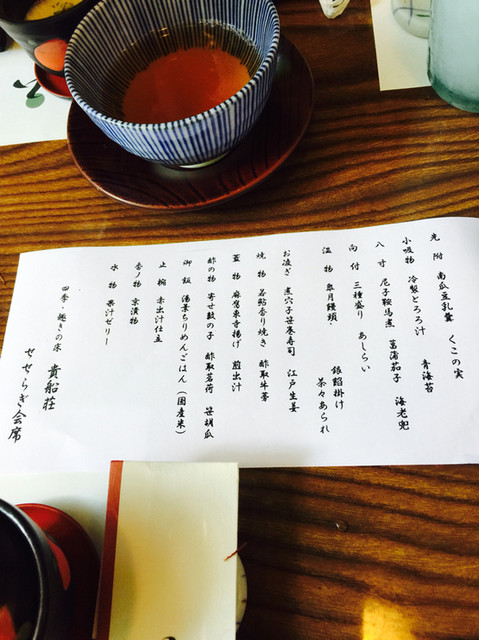 先附 南瓜豆乳羹 くこの実
小吸物 冷製とろろ汁 青海苔
八寸 尼子鞍馬煮 菖蒲茄子 海老兜
向付 三種盛り あしらい
温物 皐月饅頭 銀餡掛け
茶々あられ
お凌ぎ 煮穴子笹巻寿司 江戸生姜
焼物 若鮎香り焼き 酢取牛蒡
蓋物 麻腐東寺揚げ 煎出汁
酢の物 寄せ数の子 酢取茗荷 笹胡瓜
御飯 湯葉ちりめんごはん (国産米)
止椀 赤出汁仕立
香ノ物 京漬物
水物 果汁ゼリー
四季・趣きの床 貴船荘
せせらぎ会席